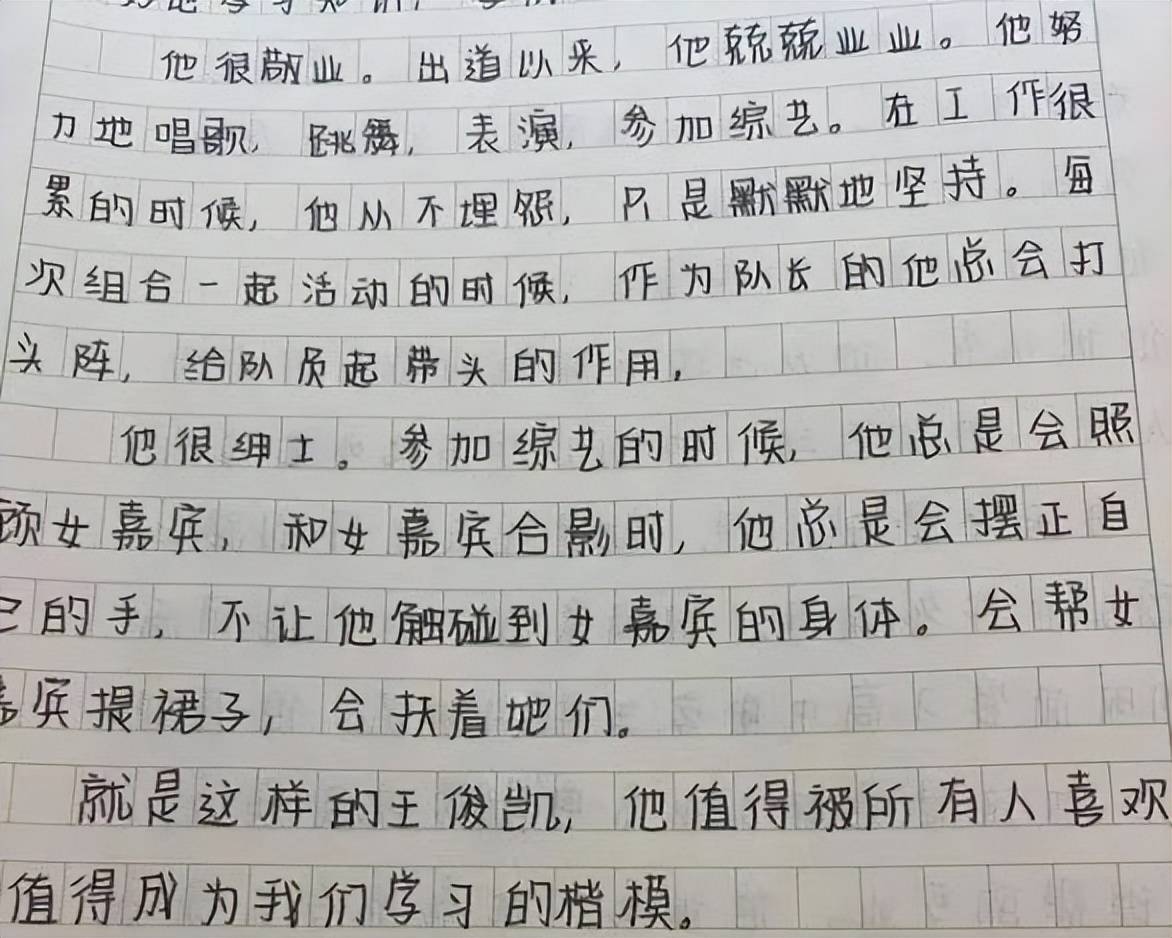 他很敬业。出道以来，他兢兢业业。他努
力地唱歌，跳舞，表演，参加综艺。在工作很
累的时候，他从不埋怨，只是默默地坚持。每
次组合一起活动的时候，作为队长的他总会打
头阵，给队员起带头的作用，
他很绅士。参加综艺的时候，他总是会照
顾女嘉宾，和女嘉宾合影时，他总是会摆正自
己的手，不让他触碰到女嘉宾的身体。会帮女
嘉宾提裙子，会扶着她们。
就是这样的王俊凯，他值得被所有人喜欢
值得成为我们学习的楷模。